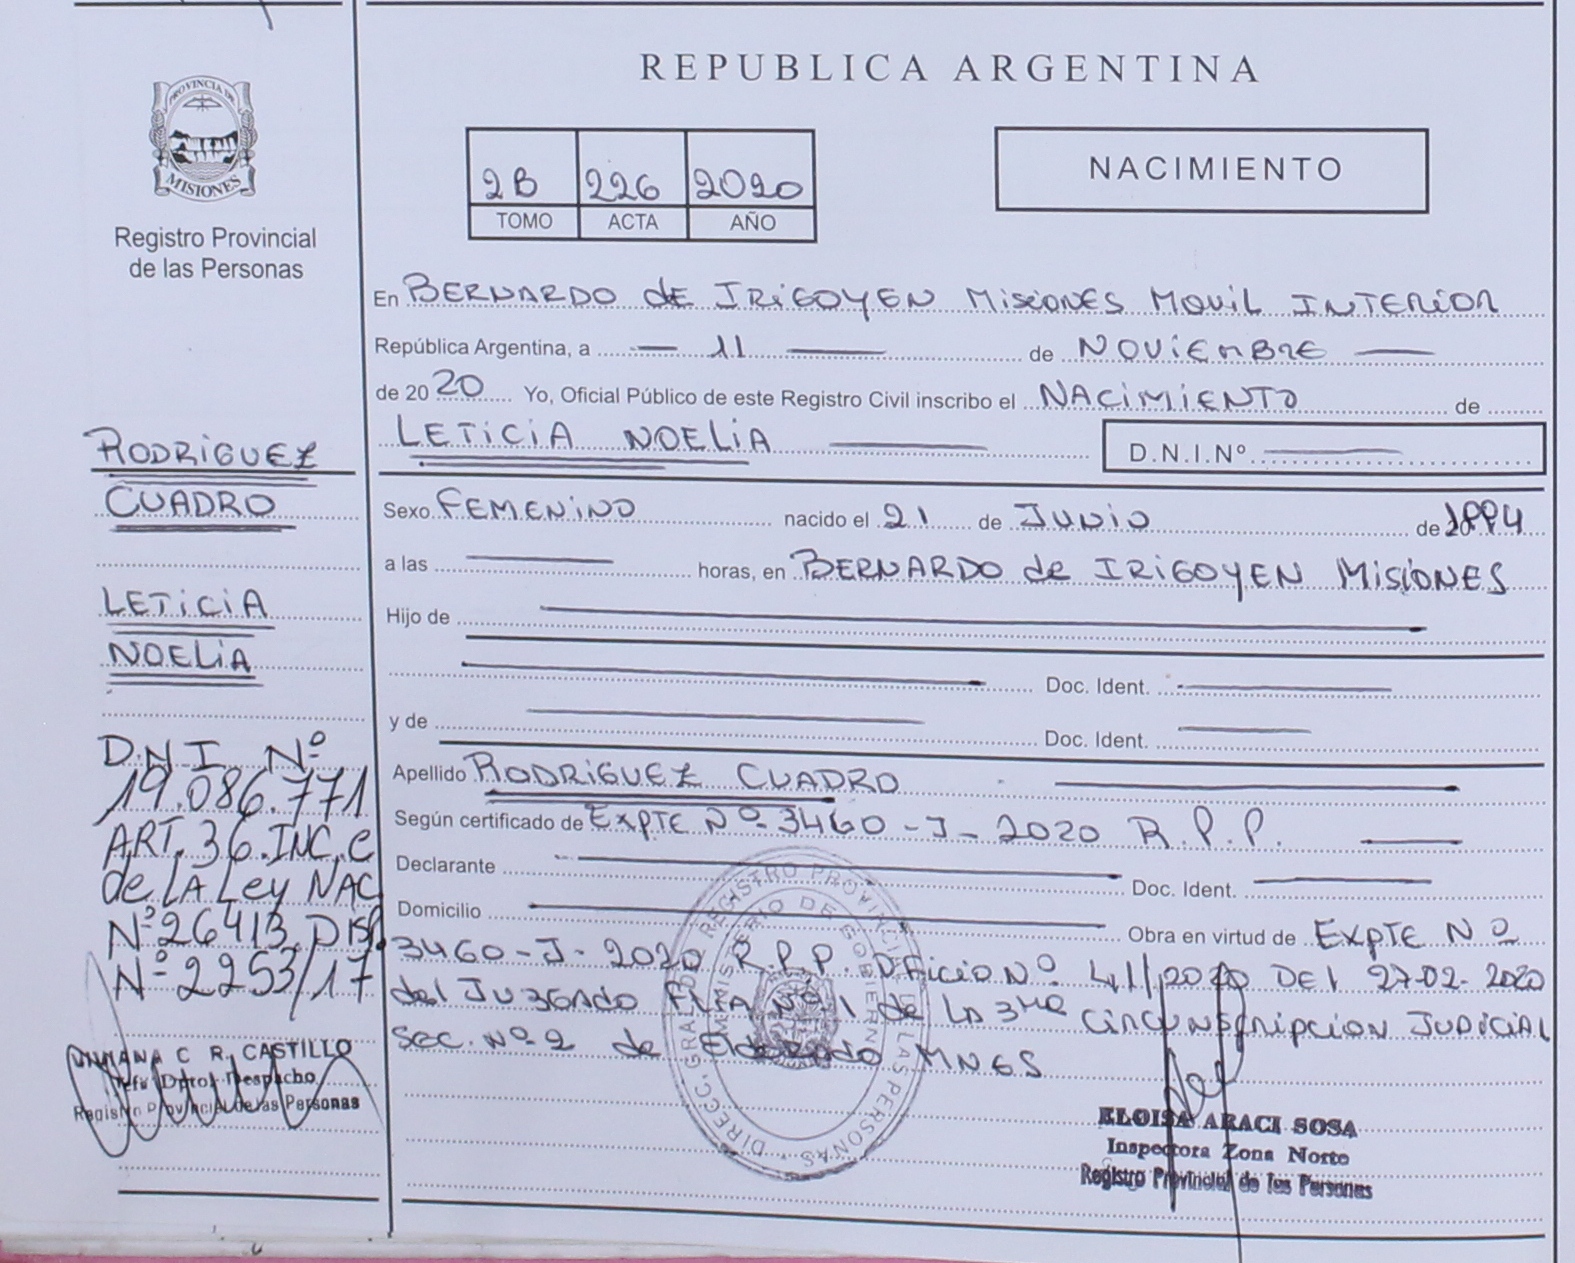 PROVINCIA DE
MISIONES
Registro Provincial
de las Personas
RODRIGUEZ
CUADRO
LETICIA
NOELIA
D.N.I. Nº
19.086.771
ART. 36.INC.e
de LA Ley NAC
Nº26413.DISP.
Nº2253/17
C R. CASTILLO
Jefe Dpto. Despacho
Registro Provincial de las Personas
REPUBLICA ARGENTINA
2B 226 2020
TOMO ACTA AÑO
NACIMIENTO
En BERNARDO de IRIGOYEN MISIONES MOVIL INTERIOR
República Argentina, a — 11 — de NOVIEMBRE —
de 20 20 Yo, Oficial Público de este Registro Civil inscribo el NACIMIENTO de
LETICIA NOELIA — D.N.I.Nº —
Sexo FEMENINO nacido el 21 de JUNIO de 1994
a las — horas, en BERNARDO de IRIGOYEN MISIONES
Hijo de —
— Doc. Ident. —
y de — Doc. Ident. —
Apellido RODRIGUEZ CUADRO —
Según certificado de EXPTE Nº 3460-J-2020 R.P.P. —
Declarante — Doc. Ident. —
Domicilio — Obra en virtud de EXPTE Nº
3460-J-2020 R.P.P. OFICIO Nº. 41/2020 DEL 27-02-2020
del JUZGADO FLIA Nº 1 de LA 3ra CIRCUNSCRIPCION JUDICIAL
SEC. Nº 2 de Eldorado MNES
DIRECC. GRAL. DE REGISTRO PROVINCIAL DE LAS PERSONAS
MINISTERIO DE GOBIERNO
ELOISA ARACI SOSA
Inspectora Zona Norte
Registro Provincial de las Personas